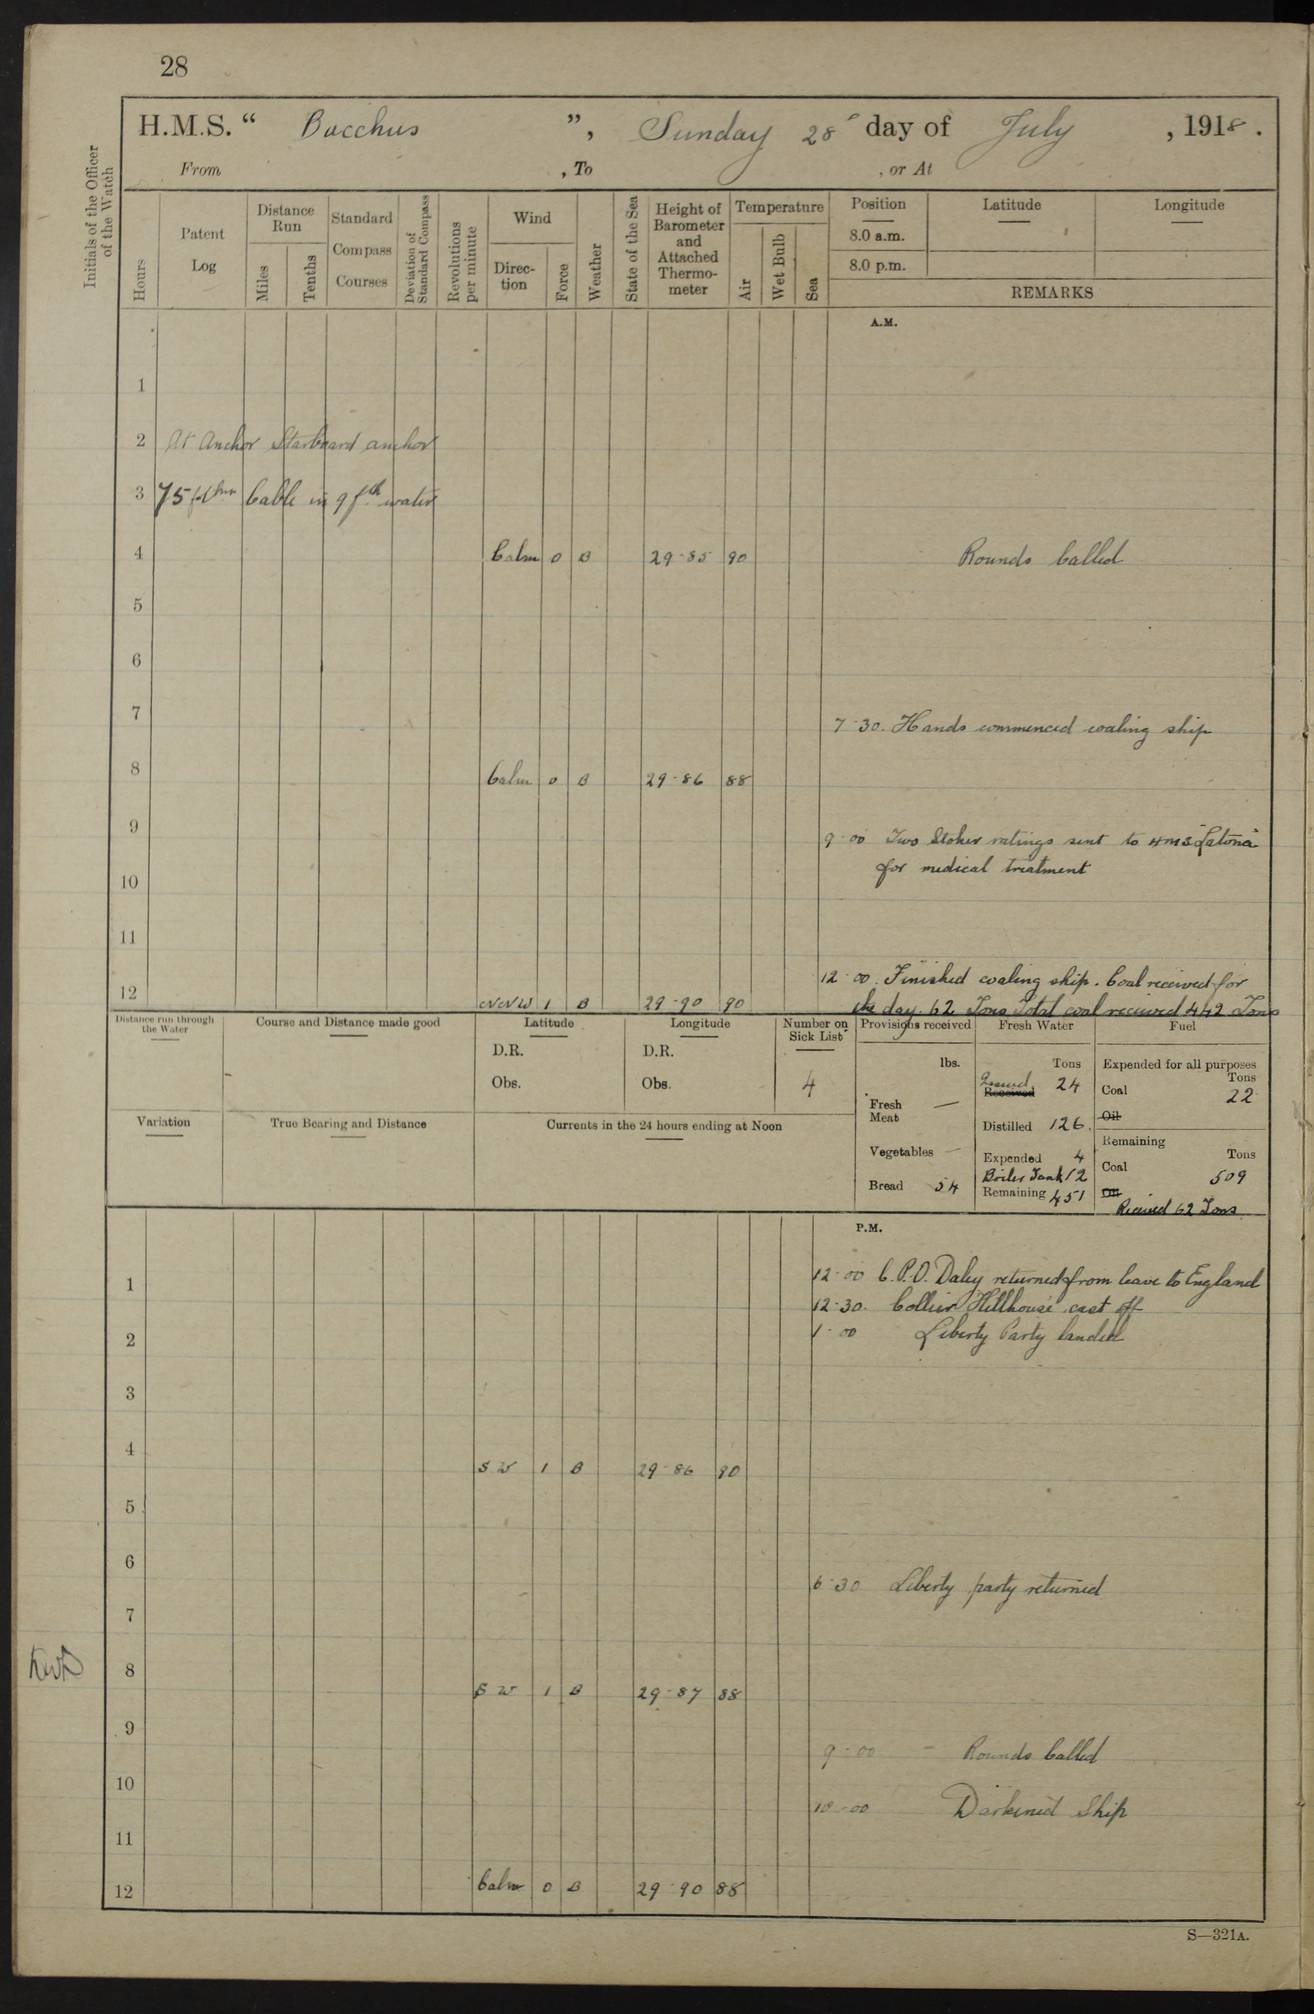 28
H.M.S. “ Bacchus ”, Sunday 28 day of July , 1918 .
From , To , or At
Initials of the Officer of the Watch
Hours
Patent Log
Distance Run
Miles
Tenths
Standard Compass Courses
Deviation of Standard Compass
Revolutions per minute
Wind
Direc-tion
Force
Weather
State of the Sea
Height of Barometer and Attached Thermo-meter
Temperature
Air
Wet Bulb
Sea
Position
8.0 a.m.
8.0 p.m.
Latitude
Longitude
REMARKS
A.M.
1
2 At Anchor Starboard anchor
3 75 fthm Cable in 9 fth water
4 Calm 0 B 29-85 90 Rounds Called
5
6
7 7-30. Hands commenced coaling ship
8 Calm 0 B 29-86 88
9 9-00 Two Stoker ratings sent to HMS "Latona"
for medical treatment
10
11
12-00. Finished coaling ship. Coal received for
12 NNW 1 B 29-90 90 the day. 62 Tons Total coal received 442 Tons
Distance run through the Water
Course and Distance made good
Latitude
D.R.
Obs.
Longitude
D.R.
Obs.
Number on Sick List
4
Variation
True Bearing and Distance
Currents in the 24 hours ending at Noon
Provisions received
lbs.
Fresh Meat —
Vegetables —
Bread 54
Fresh Water
Tons
Issued
Received 24
Distilled 126.
Expended 4
Boiler Tank 12
Remaining 451
Fuel
Expended for all purposes
Tons
Coal 22
Oil
Remaining
Tons
Coal 509
Oil
Received 62 Tons
P.M.
1 12-00 C.P.O. Daley returned from leave to England
12-30. Collier Hillhouse cast off
2 1-00 Liberty Party landed
3
4 SW 1 B 29-86 90
5
6 6-30 Liberty party returned
7
8 SW 1 B 29-87 88
9 9-00 - Rounds Called
10 10-00 Darkened Ship
11
12 Calm 0 B 29-90 88
S—321A.